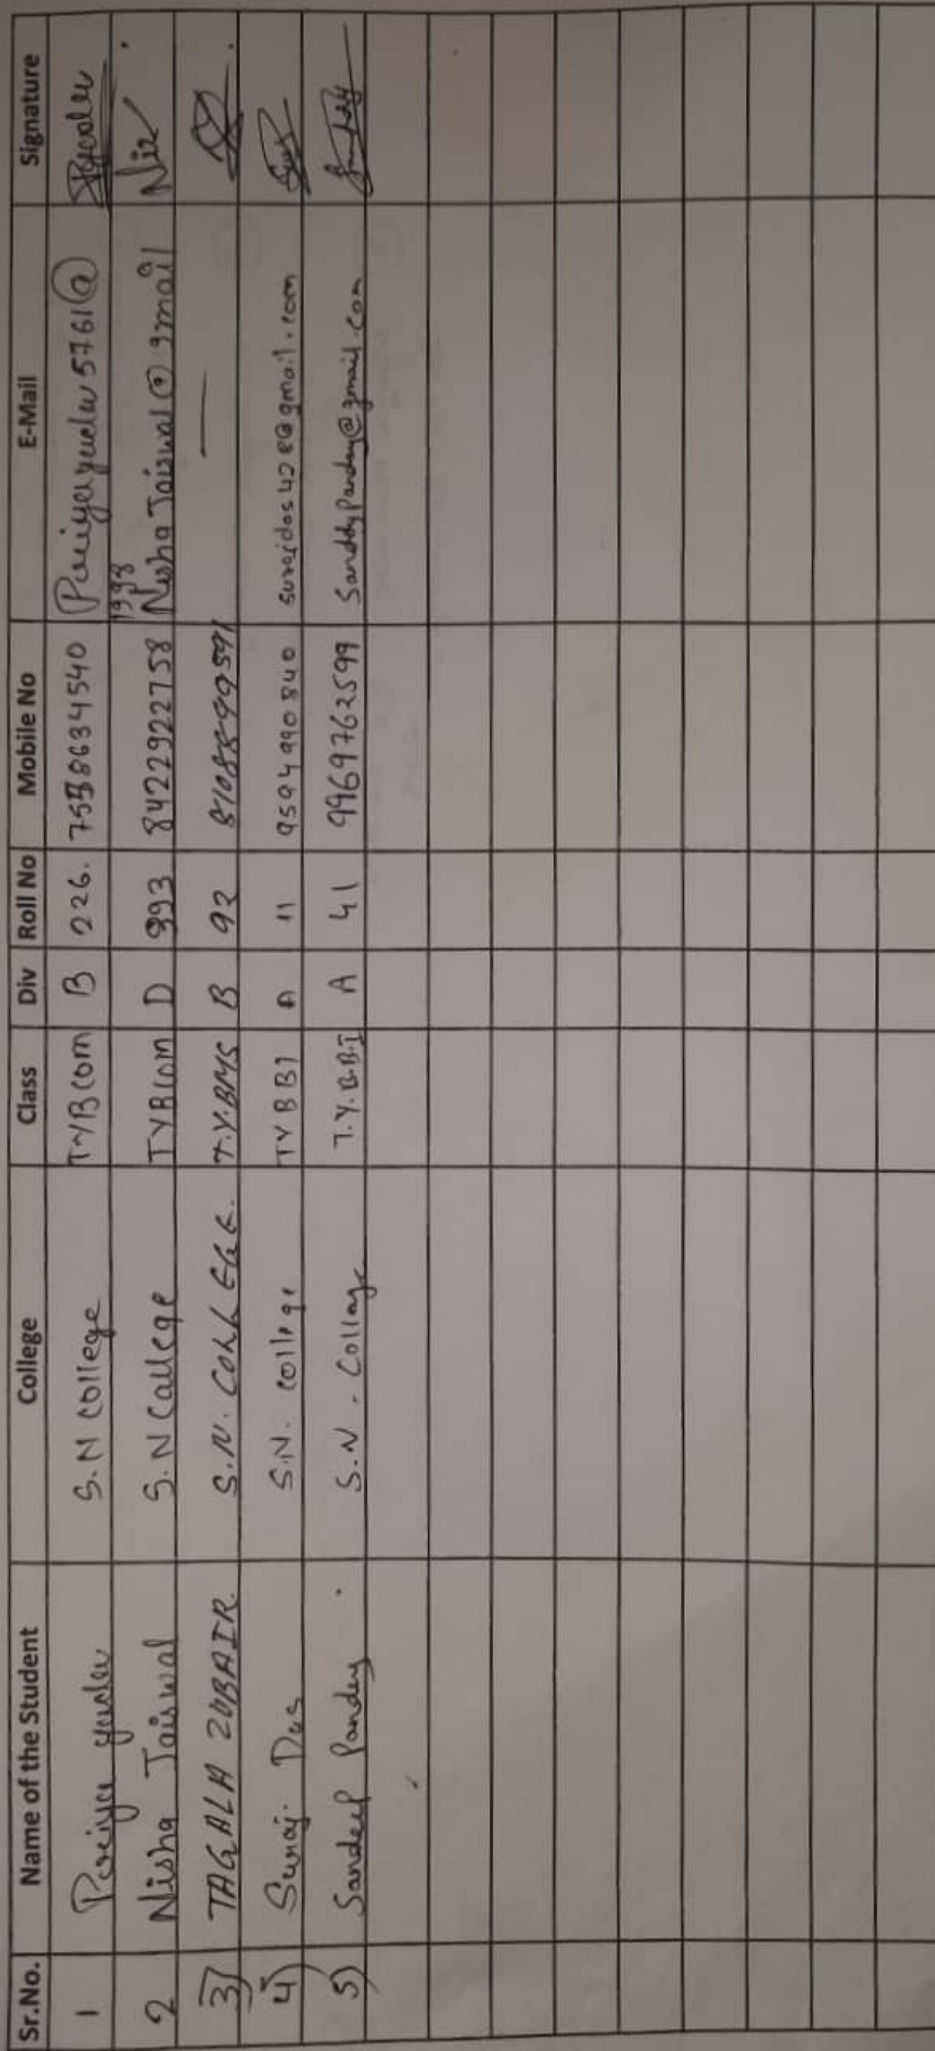 Sr.No. Name of the Student College Class Div Roll No Mobile No E-Mail Signature
1 Priya yadav S.N College TYBCom B 226. 7558634540 Priyayadav5761@
2 Nisha Jaiswal S.N Callege TYBCom D 993 8422922758 1998 NishaJaiswal@gmail
3) TAGALA ZUBAIR. S.N. COLLEGE. T.Y.BMS B 92 8108899591 —
4) Suraj. Das S.N. College TYBBI A 11 9594990840 surajdas428@gmail.com
5) Sandeep Pandey S.N. College T.Y.B.B.I A 41 9969762599 SanddyPandey@gmail.com